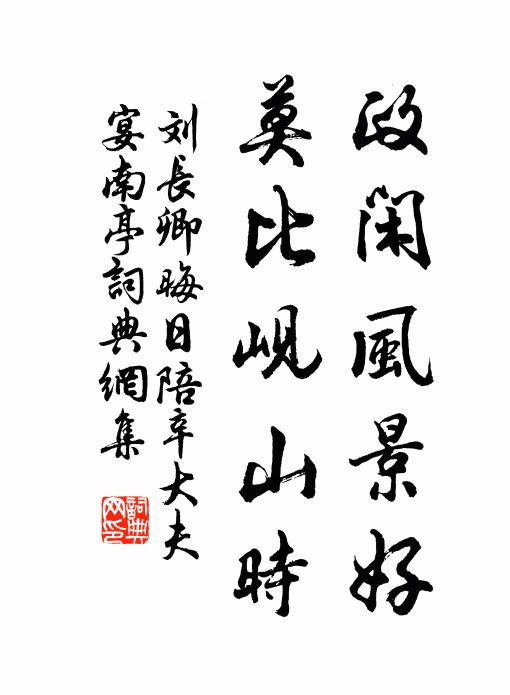 政閑風景好
莫比峴山時
刘長卿晦日陪辛大夫
宴南亭詞典網集
詞典
网印